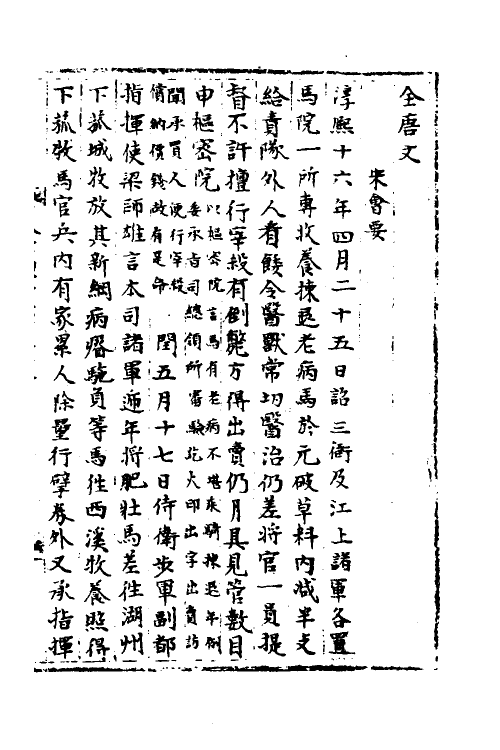 全唐文
宋會要
淳熙十六年四月二十五日詔三衙及江上諸軍各置
馬院一所專收養揀退老病馬於元破草料内減半支
給責隊外人看餧令醫獸常切醫治仍差將官一員提
督不許擅行宰殺有倒斃方得出賣仍月具見管數目
申樞密院以樞密院言馬有老病不堪乘騎揀退年例
委承旨司總領所審驗訖火印出字出賣訪
聞承買人便行宰殺
償納價錢故有是命 閏五月十七日侍衛步軍副都
指揮使梁師雄言本司諸軍遞年將肥壯馬差往湖州
下菰城牧放其新綱病瘠駞負等馬往西溪牧養照得
下菰牧馬官兵内有家累人除量行擘券外又承指揮